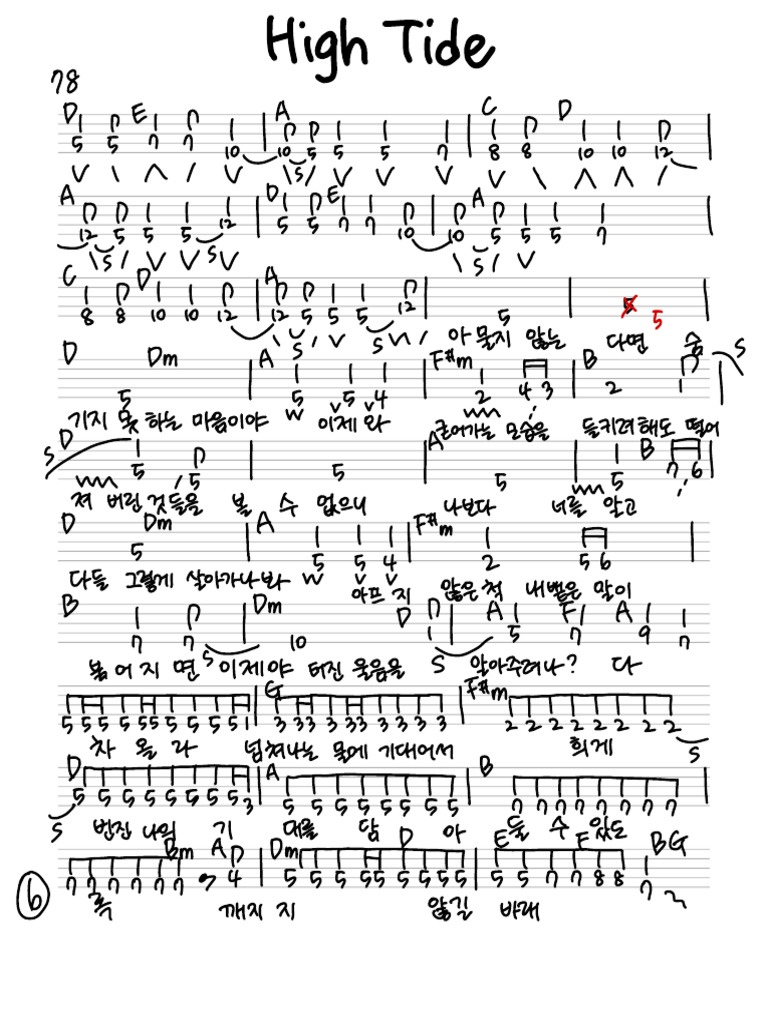 High Tide
78
D E A C D
5 5 7 7 10 10 5 5 5 7 8 8 10 10 12
S
A D E A
12 5 5 5 12 5 5 7 7 10 10 5 5 5 7
S S S
C D A
8 8 10 10 12 12 5 5 5 12 5 5
S S 아 물지 않는 다면 숨
D Dm A F#m B S
5 5 5 4 2 4 3 2 1
기지 못하는 마음이야 이제 와 굳어가는 모습을 들키려 해도 떨어
S D A B
5 5 5 5 5 7 6
져 버린 것들을 볼 수 없으니 나보다 너를 알고
D Dm A F#m
5 5 5 4 2 5 6
다들 그렇게 살아가나봐 아프지 않은척 내뱉은 말이
B Dm D A F A
7 7 10 1 5 7 9 7
S 이제야 터진 울음을 S 알아주려나? 다
G F#m
5 5 5 5 5 5 5 5 5 5 1 3 3 3 3 3 3 3 3 3 3 2 2 2 2 2 2 2 2
차 올라 넘쳐나는 물에 기대어서 희게 S
D A B
5 5 5 5 5 5 5 5 3 5 5 5 5 5 5 5 5 7 7 7 7 7 7 7 7
S 번진 나의 기 대를 담 아 들 수 있도
Bm A D Dm D E F B G
7 7 7 7 7 7 7 4 5 5 5 5 5 5 5 5 5 5 5 7 7 8 8 7
6 록 깨지지 않길 바래